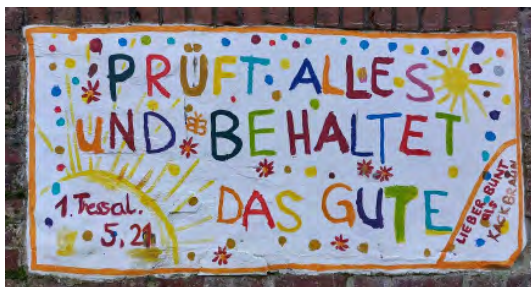 PRÜFT ALLES
UND BEHALTET
DAS GUTE
1. Tessal.
5, 21
LIEBER BUNT
ALS
KACKBRAUN